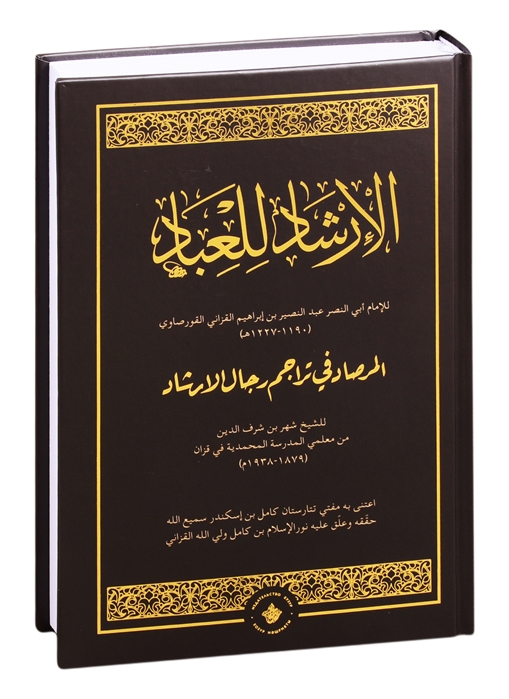 الإرشاد للعباد
للإمام أبي النصر عبد النصير بن إبراهيم القزاني القورصاوي
(١١٩٠-١٢٢٧هـ)
المرصاد في تراجم رجال الارشاد
للشيخ شهر بن شرف الدين
من معلمي المدرسة المحمدية في قزان
(١٨٧٩-١٩٣٨م)
اعتنى به مفتي تتارستان كامل بن إسكندر سميع الله
حققه وعلّق عليه نور الإسلام بن كامل ولي الله القزاني
ИЗДАТЕЛЬСТВО ХУЗУР